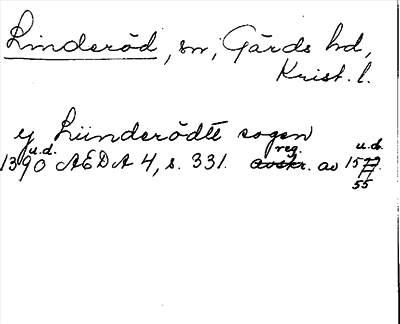 Linderöd, sn, Gärds hd,
Krist. l.
ij Lünderödtt sogen
u.d. reg. u.d.
1390 AEDA 4, s. 331. avskr. av 1577.
55